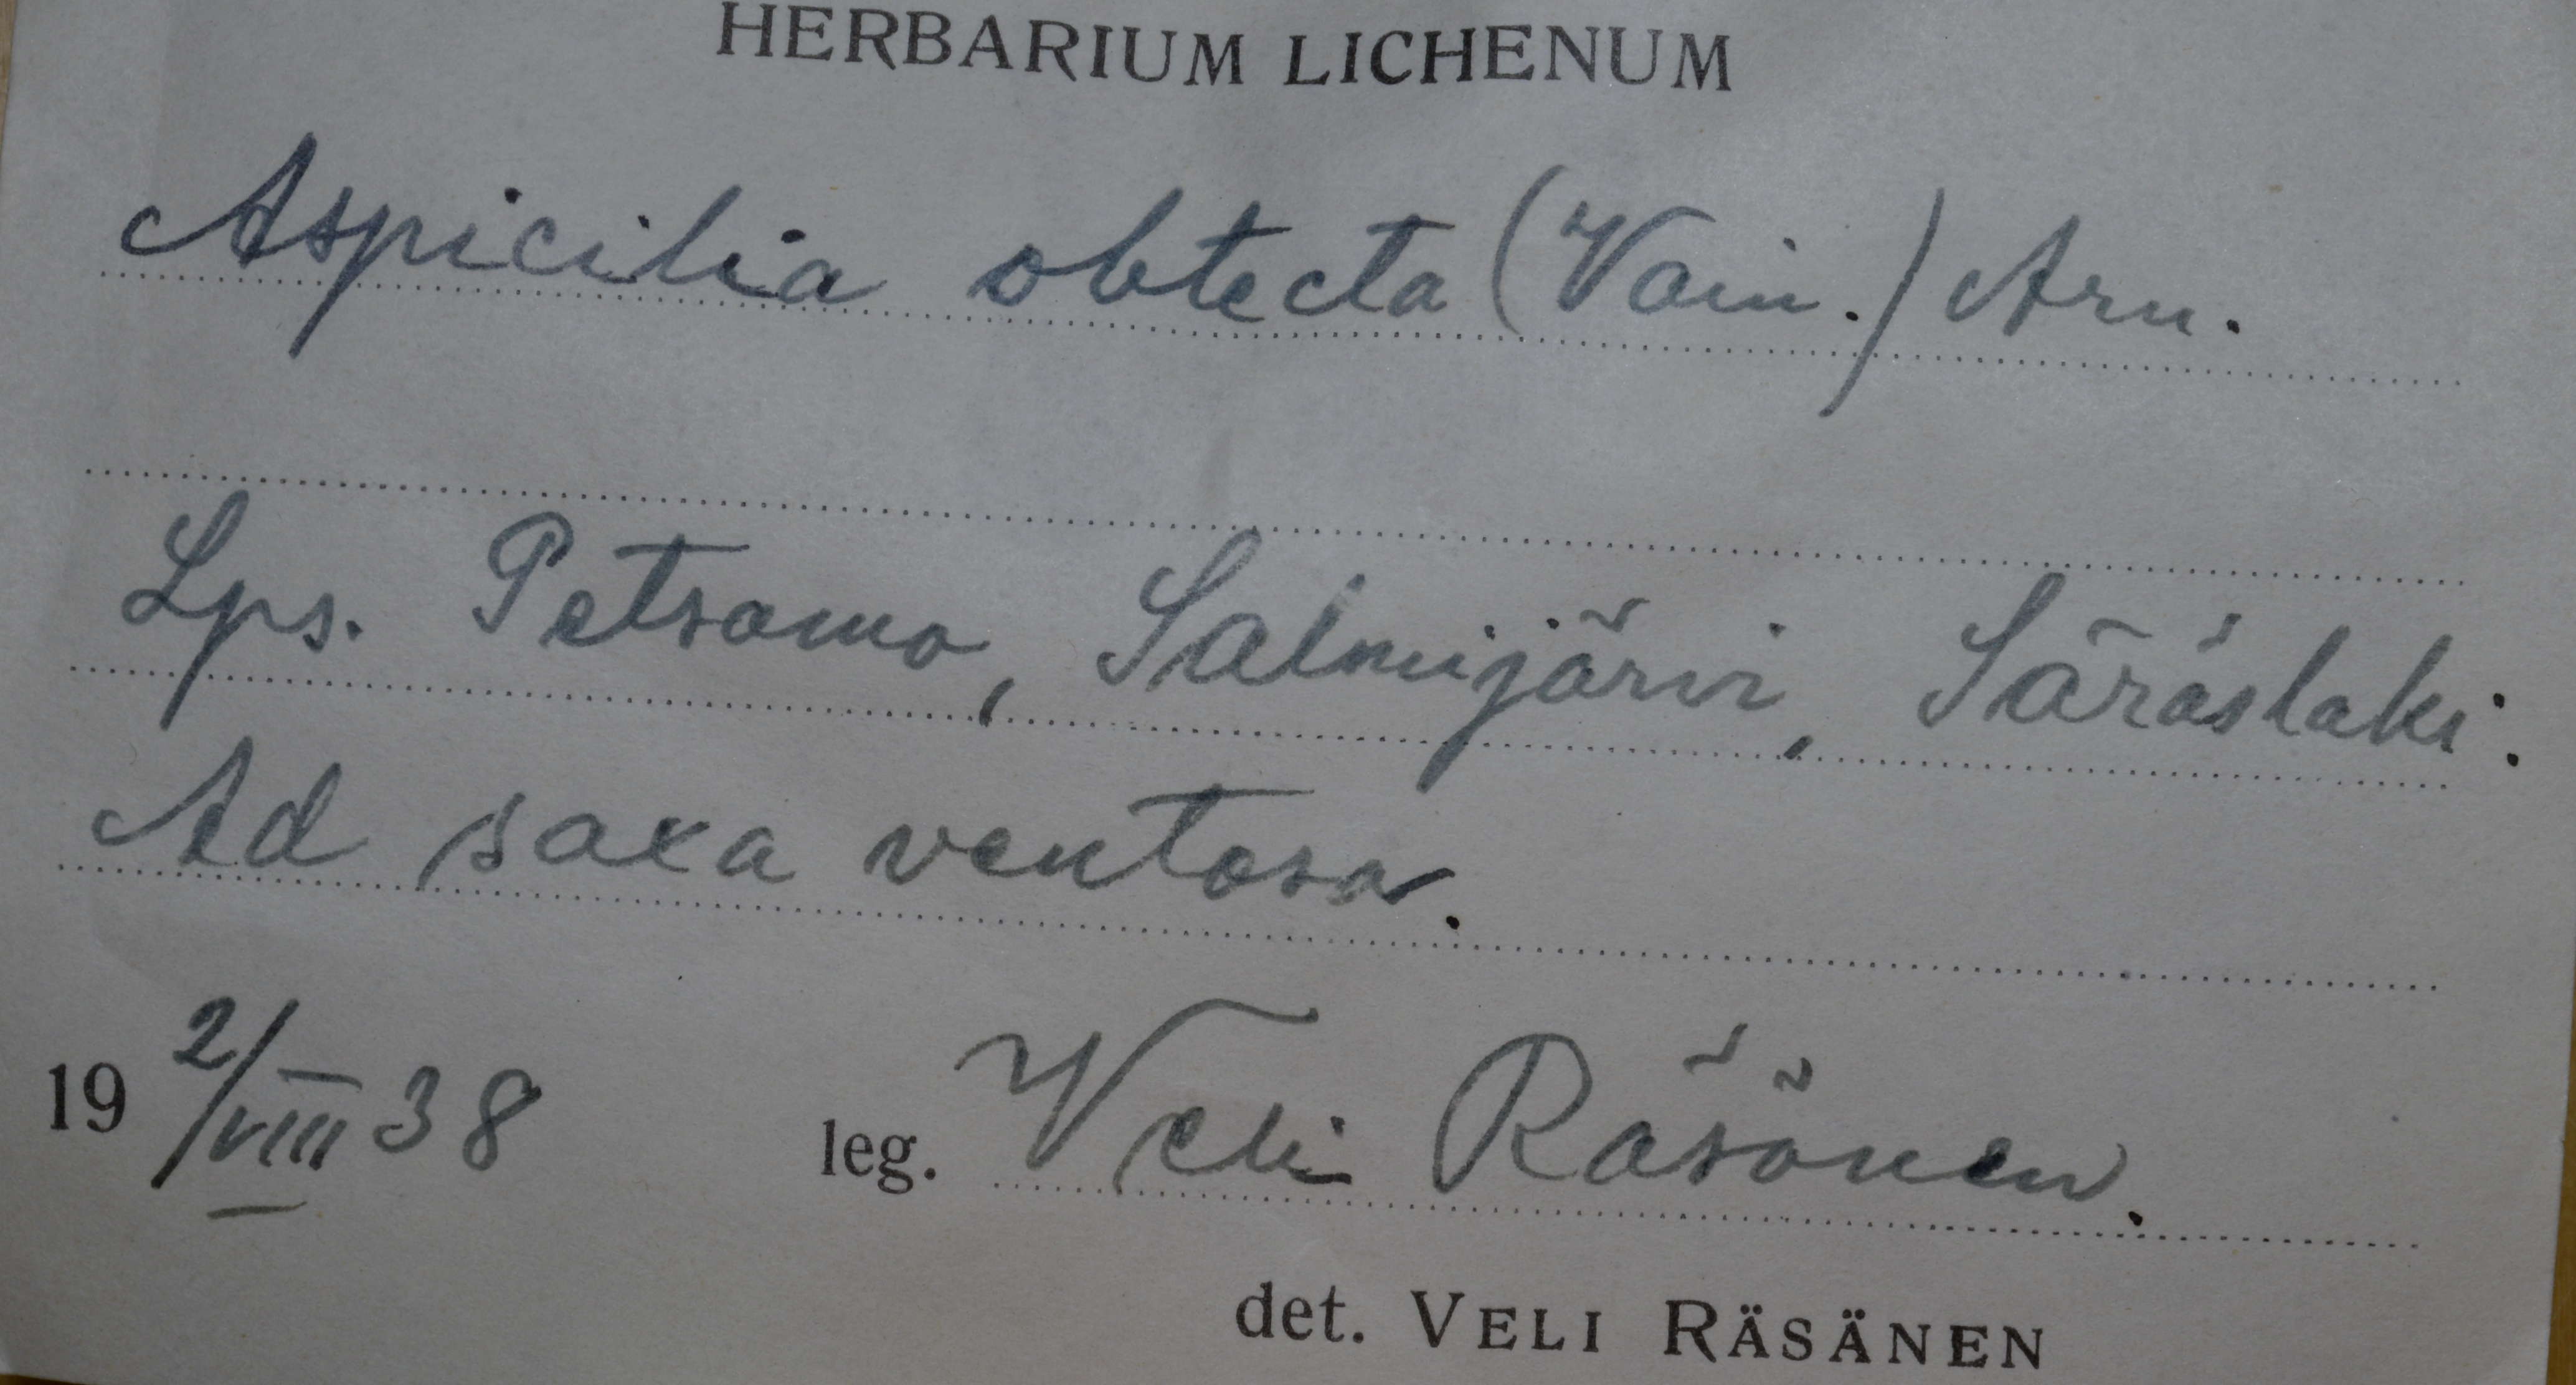 HERBARIUM LICHENUM
Aspicilia obtecta (Vain.) Arn.
Lps. Petsamo, Salmijärvi, Säräslaki:
Ad saxa ventosa.
19 2/VIII 38 leg. Veli Räsänen.
det. VELI RÄSÄNEN